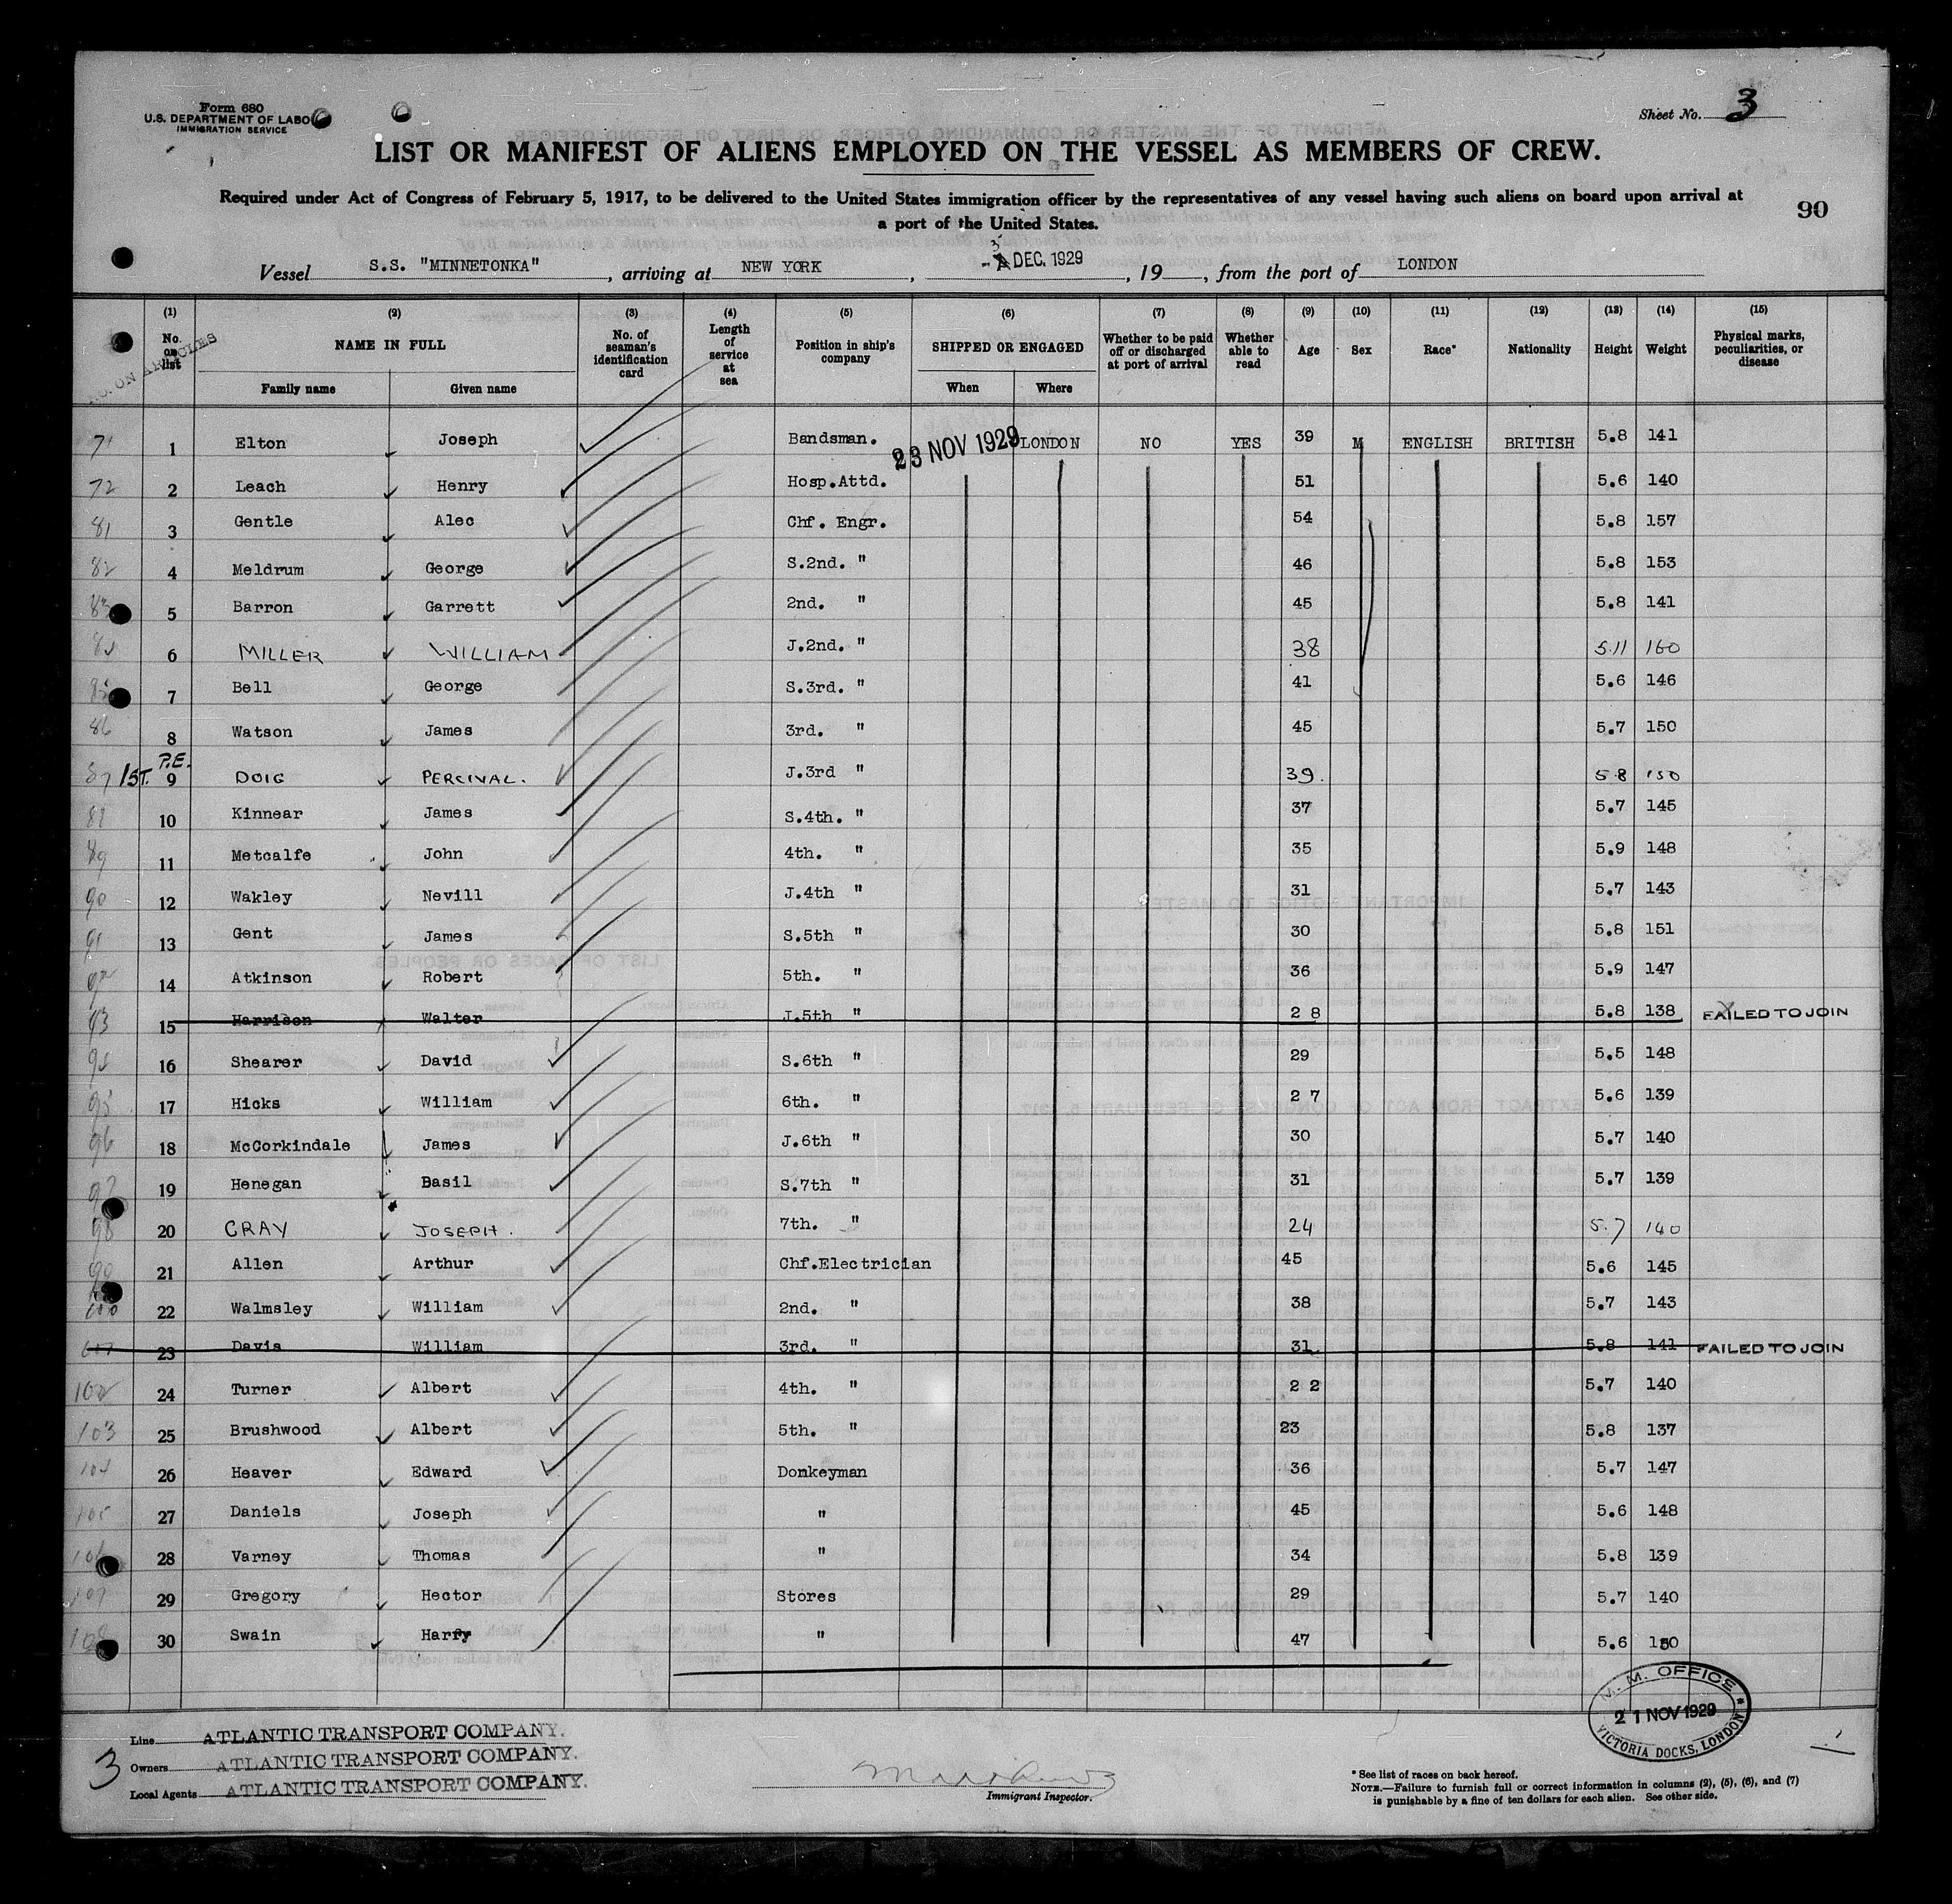 Form 680
U.S. DEPARTMENT OF LABO
IMMIGRATION SERVICE
Sheet No. 3
LIST OR MANIFEST OF ALIENS EMPLOYED ON THE VESSEL AS MEMBERS OF CREW.
Required under Act of Congress of February 5, 1917, to be delivered to the United States immigration officer by the representatives of any vessel having such aliens on board upon arrival at
a port of the United States.
90
Vessel S.S. "MINNETONKA", arriving at NEW YORK, 3 DEC. 1929, 19, from the port of LONDON
(1) (2) (3) (4) (5) (6) (7) (8) (9) (10) (11) (12) (13) (14) (15)
No. on list NAME IN FULL No. of seaman's identification card Length of service at sea Position in ship's company SHIPPED OR ENGAGED Whether to be paid off or discharged at port of arrival Whether able to read Age Sex Race* Nationality Height Weight Physical marks, peculiarities, or disease
NO. ON ARTICLES
Family name Given name When Where
71 1 Elton Joseph Bandsman. 23 NOV 1929 LONDON NO YES 39 M ENGLISH BRITISH 5.8 141
72 2 Leach Henry Hosp.Attd. 51 5.6 140
81 3 Gentle Alec Chf. Engr. 54 5.8 157
82 4 Meldrum George S.2nd. " 46 5.8 153
83 5 Barron Garrett 2nd. " 45 5.8 141
84 6 MILLER WILLIAM J.2nd. " 38 5.11 160
85 7 Bell George S.3rd. " 41 5.6 146
86 8 Watson James 3rd. " 45 5.7 150
P.E.
87 1ST. 9 DOIG PERCIVAL. J.3rd " 39. 5 8 150
88 10 Kinnear James S.4th. " 37 5.7 145
89 11 Metcalfe John 4th. " 35 5.9 148
90 12 Wakley Nevill J.4th " 31 5.7 143
91 13 Gent James S.5th " 30 5.8 151
92 14 Atkinson Robert 5th. " 36 5.9 147
93 15 Harrison Walter J.5th " 2 8 5.8 138 FAILED TO JOIN
94 16 Shearer David S.6th " 29 5.5 148
95 17 Hicks William 6th. " 2 7 5.6 139
96 18 McCorkindale James J.6th " 30 5.7 140
97 19 Henegan Basil S.7th " 31 5.7 139
98 20 GRAY JOSEPH. 7th. " 24 5.7 140
99 21 Allen Arthur Chf.Electrician 45 5.6 145
100 22 Walmsley William 2nd. " 38 5.7 143
23 Davis William 3rd. " 31 5.8 141 FAILED TO JOIN
102 24 Turner Albert 4th. " 2 2 5.7 140
103 25 Brushwood Albert 5th. " 23 5.8 137
104 26 Heaver Edward Donkeyman 36 5.7 147
105 27 Daniels Joseph " 45 5.6 148
106 28 Varney Thomas " 34 5.8 139
107 29 Gregory Hector Stores 29 5.7 140
108 30 Swain Harry " 47 5.6 150
M. M. OFFICE
21 NOV 1929
VICTORIA DOCKS, LONDON
Line ATLANTIC TRANSPORT COMPANY.
3 Owners ATLANTIC TRANSPORT COMPANY.
Local Agents ATLANTIC TRANSPORT COMPANY.
Immigrant Inspector.
* See list of races on back hereof.
NOTE.—Failure to furnish full or correct information in columns (2), (5), (6), and (7)
is punishable by a fine of ten dollars for each alien. See other side.